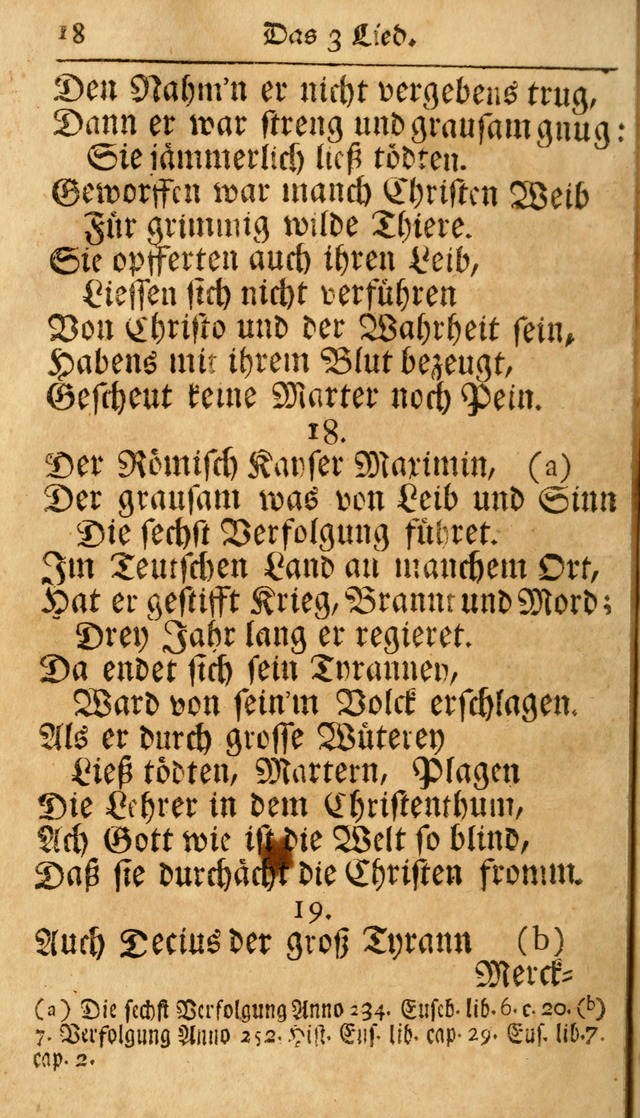 18 Das 3 Lied.
Den Nahm'n er nicht vergebens trug,
Dann er war streng und grausam gnug:
Sie jämmerlich ließ tödten.
Geworffen war manch Christen Weib
Für grimmig wilde Thiere.
Sie opfferten auch ihren Leib,
Liessen sich nicht verführen
Von Christo und der Wahrheit sein,
Habens mit ihrem Blut bezeugt,
Gescheut keine Marter noch Pein.
18.
Der Römisch Kayser Maximin, (a)
Der grausam was von Leib und Sinn
Die sechst Verfolgung führet.
Im Teutschen Land an manchem Ort,
Hat er gestifft Krieg, Brannt und Mord;
Drey Jahr lang er regieret.
Da endet sich sein Tyranney,
Ward von sein'm Volck erschlagen.
Als er durch grosse Wüterey
Ließ tödten, Martern, Plagen
Die Lehrer in dem Christenthum,
Ach Gott wie ist die Welt so blind,
Daß sie durchächt die Christen fromm.
19.
Auch Decius der groß Tyrann (b)
Merck=
(a) Die sechst Verfolgung Anno 234. Euseb. lib. 6. c. 20. (b)
7. Verfolgung Anno 252. Hist. Eus. lib. cap. 29. Eus. lib. 7.
cap. 2.